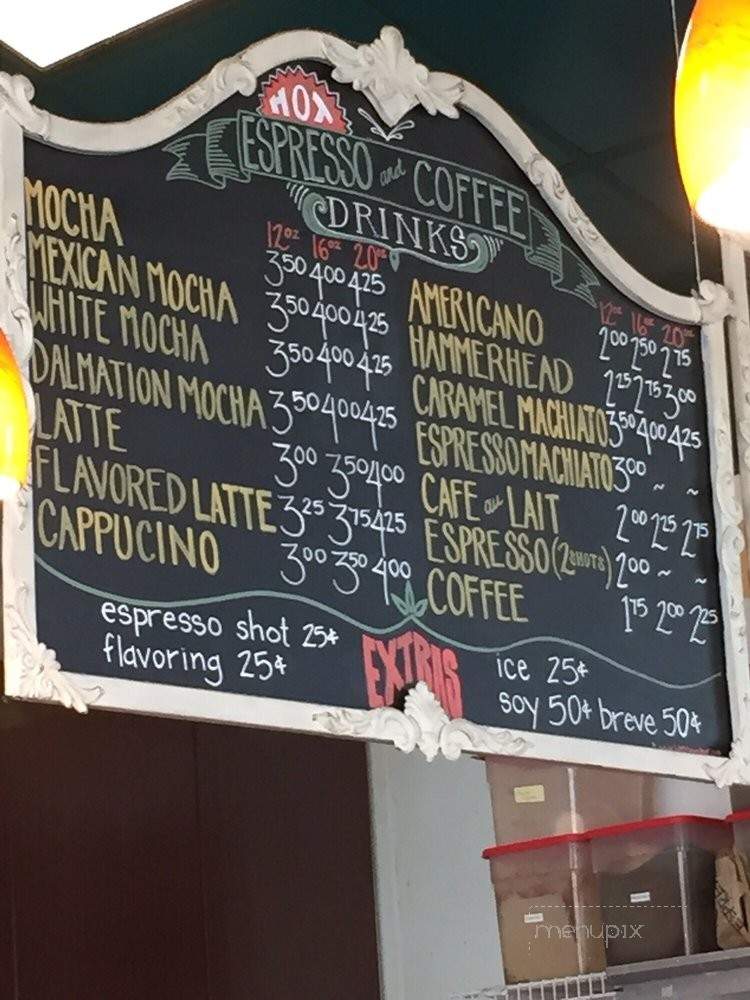 HOT
ESPRESSO and COFFEE
DRINKS
12oz 16oz 20oz
MOCHA 350 400 425
MEXICAN MOCHA 350 400 425
WHITE MOCHA 350 400 425
DALMATION MOCHA 350 400 425
LATTE 300 350 400
FLAVORED LATTE 325 375 425
CAPPUCINO 300 350 400
12oz 16oz 20oz
AMERICANO 200 250 275
HAMMERHEAD 225 275 300
CARAMEL MACHIATO 350 400 425
ESPRESSO MACHIATO 300 ~ ~
CAFE au LAIT 200 225 275
ESPRESSO (2 SHOTS) 200 ~ ~
COFFEE 175 200 225
EXTRAS
espresso shot 25¢
flavoring 25¢
ice 25¢
soy 50¢ breve 50¢
menupix